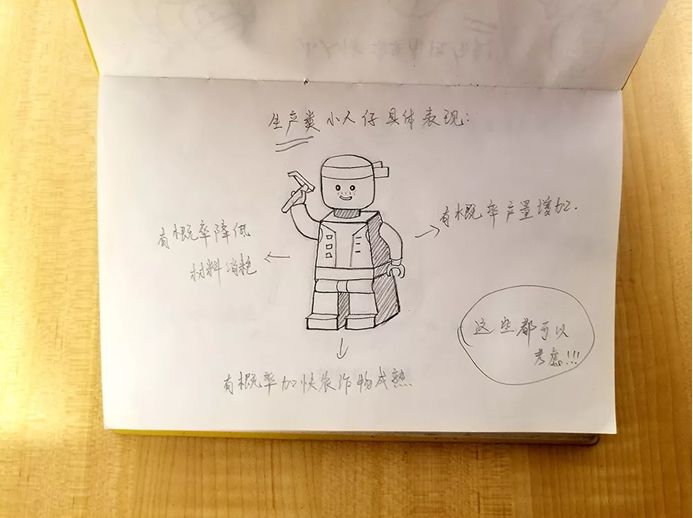 生产类小人仔具体表现：
有概率产量增加.
有概率降低
材料消耗
这些都可以
考虑!!!
有概率加快农作物成熟